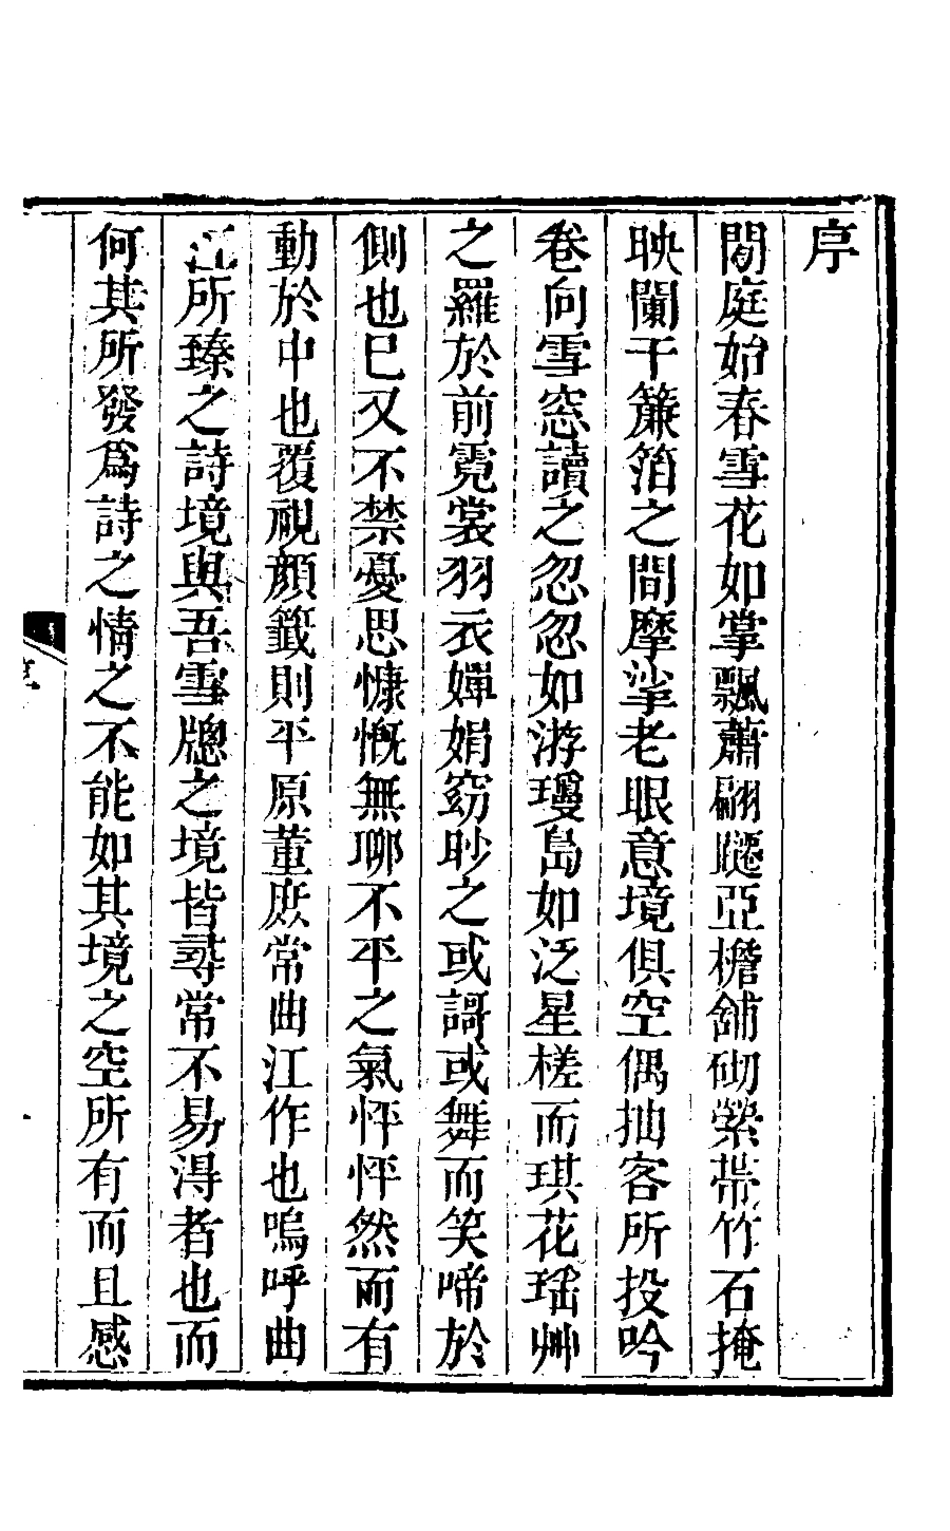 序
閒庭始春雪花如掌飄蕭翩躚亞檐舖砌縈帶竹石掩
映闌干簾箔之間摩挲老眼意境俱空偶抽客所投吟
卷向雪窓讀之忽忽如游瓊島如泛星槎而琪花瑶艸
之羅於前霓裳羽衣嬋娟窈眇之或謌或舞而笑啼於
側也已又不禁憂思慷慨無聊不平之氣怦怦然而有
動於中也覆視顏籖則平原董庶常曲江作也嗚呼曲
江所臻之詩境與吾雪牕之境皆尋常不易得者也而
何其所發爲詩之情之不能如其境之空所有而且感